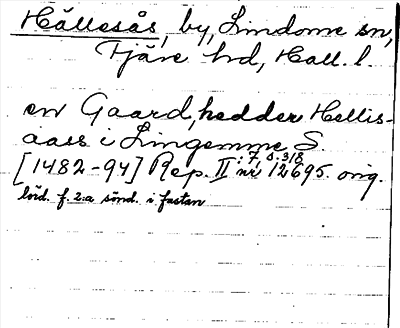 Hällesås, by, Lindome sn,
Fjäre hd, Hall. l.
en Gaard, hedder Hellis-
aass i Lingemme S.
[1482-94] Rep. II : 7, s. 318 nr 12695. orig.
lörd. f. 2:a sönd. i fastan